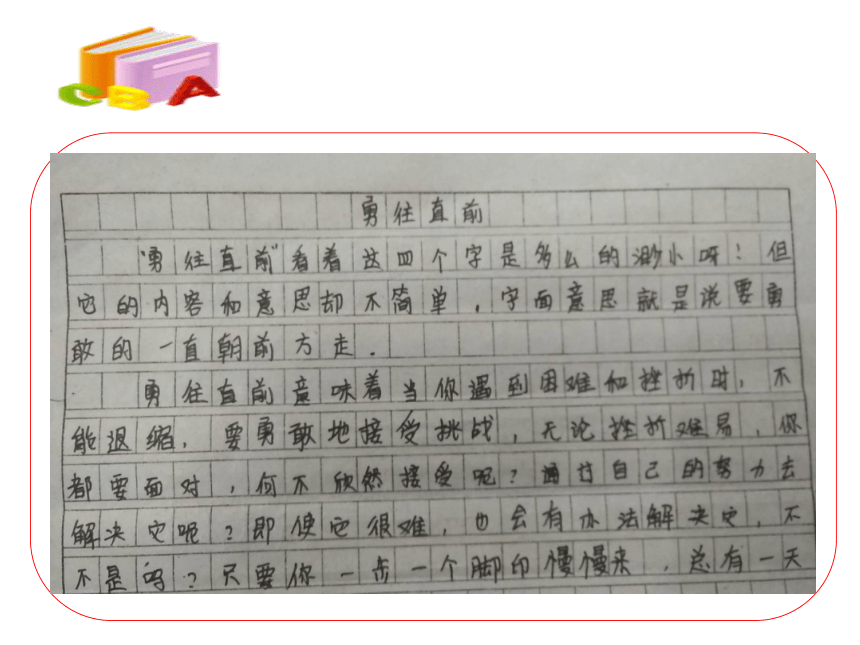 CBA
勇往直前
“勇往直前”看着这四个字是多么的渺小呀！但
它的内容和意思却不简单，字面意思就是说要勇
敢的一直朝前方走．
勇往直前意味着当你遇到困难和挫折时，不
能退缩，要勇敢地接受挑战，无论挫折难易，你
都要面对，何不欣然接受呢？通过自己的努力去
解决它呢？即使它很难，也会有办法解决它，不
不是吗？只要你一步一个脚印慢慢来，总有一天